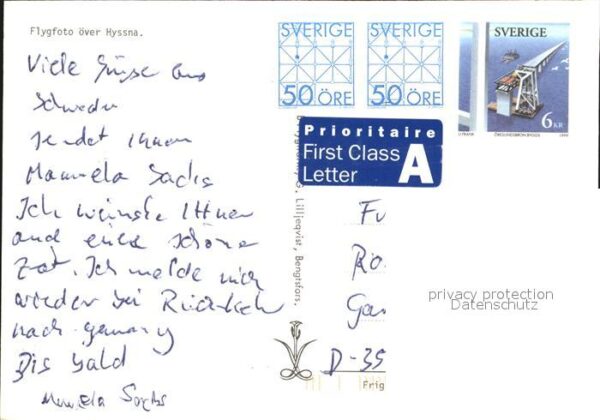 Flygfoto över Hyssna.
Viele Grüße aus
Schweden
sendet Ihnen
Manuela Sachs
Ich wünsche Ihnen
auch eine schöne
Zeit. Ich melde mich
wieder bei Rückkehr
nach Germany
Bis bald
Manuela Sachs
SVERIGE
50 ÖRE
SVERIGE
50 ÖRE
SVERIGE
6 KR
ÖRESUNDSBRON BYGGS
Prioritaire
First Class
Letter
A
G. Lilljeqvist, Bengtsfors.
D-35
privacy protection
Datenschutz